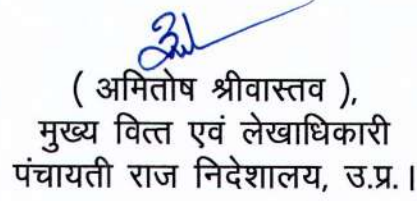 ( अमितोष श्रीवास्तव ),
मुख्य वित्त एवं लेखाधिकारी
पंचायती राज निदेशालय, उ.प्र.।